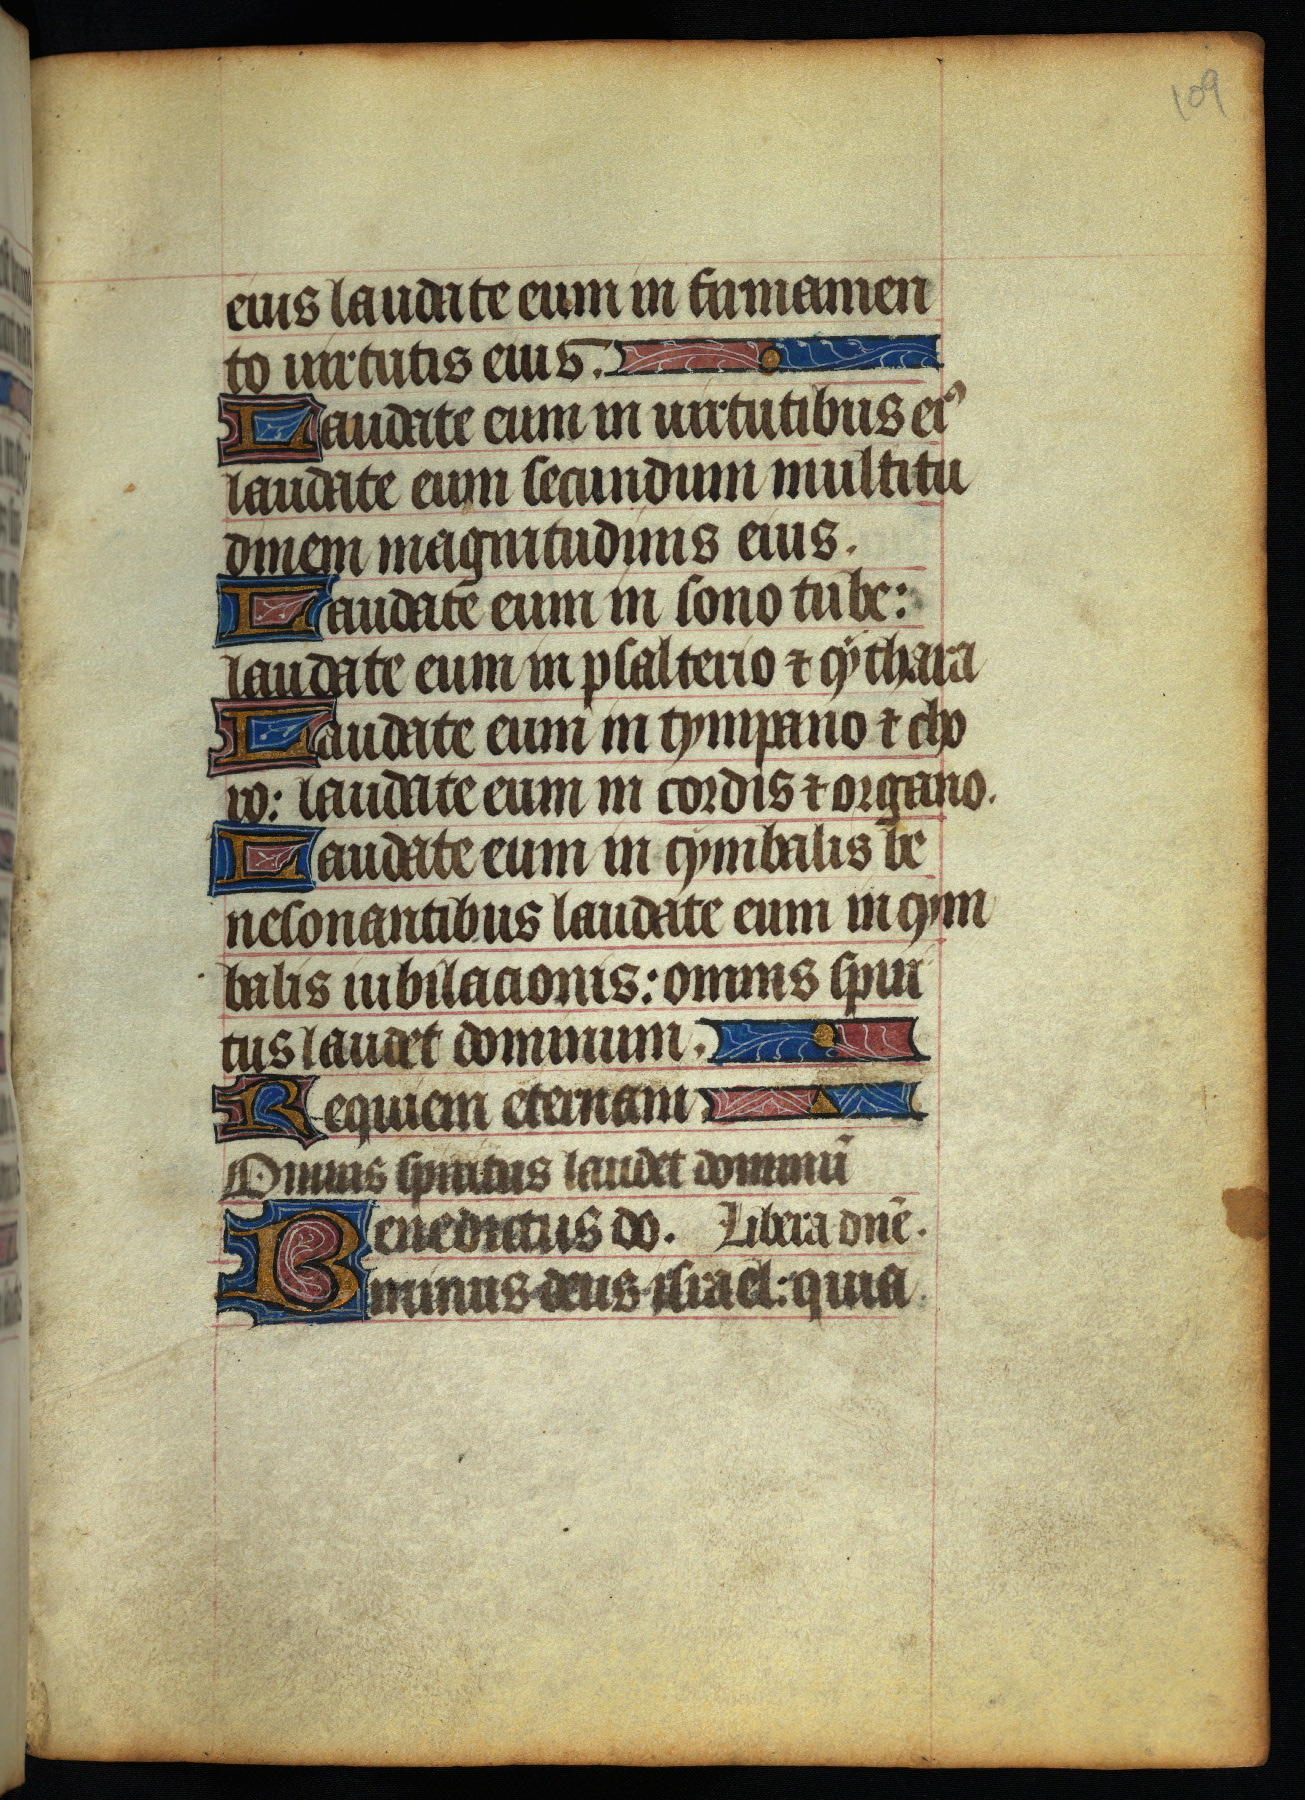 109
eius laudate eum in firmamen
to uirtutis eius.
Laudate eum in uirtutibus ei⁹
laudate eum secundum multitu
dinem magnitudinis eius.
Laudate eum in sono tube:
laudate eum in psalterio ⁊ cythara
Laudate eum in tympano ⁊ cho
ro: laudate eum in cordis ⁊ organo.
Laudate eum in cymbalis be
nesonantibus laudate eum in cym
balis iubilacionis: omnis spiri
tus laudet dominum.
Requiem eternam
Omnis spiritus laudet dominū
Benedictus do. Libera dn̄e.
minus deus israel: quia